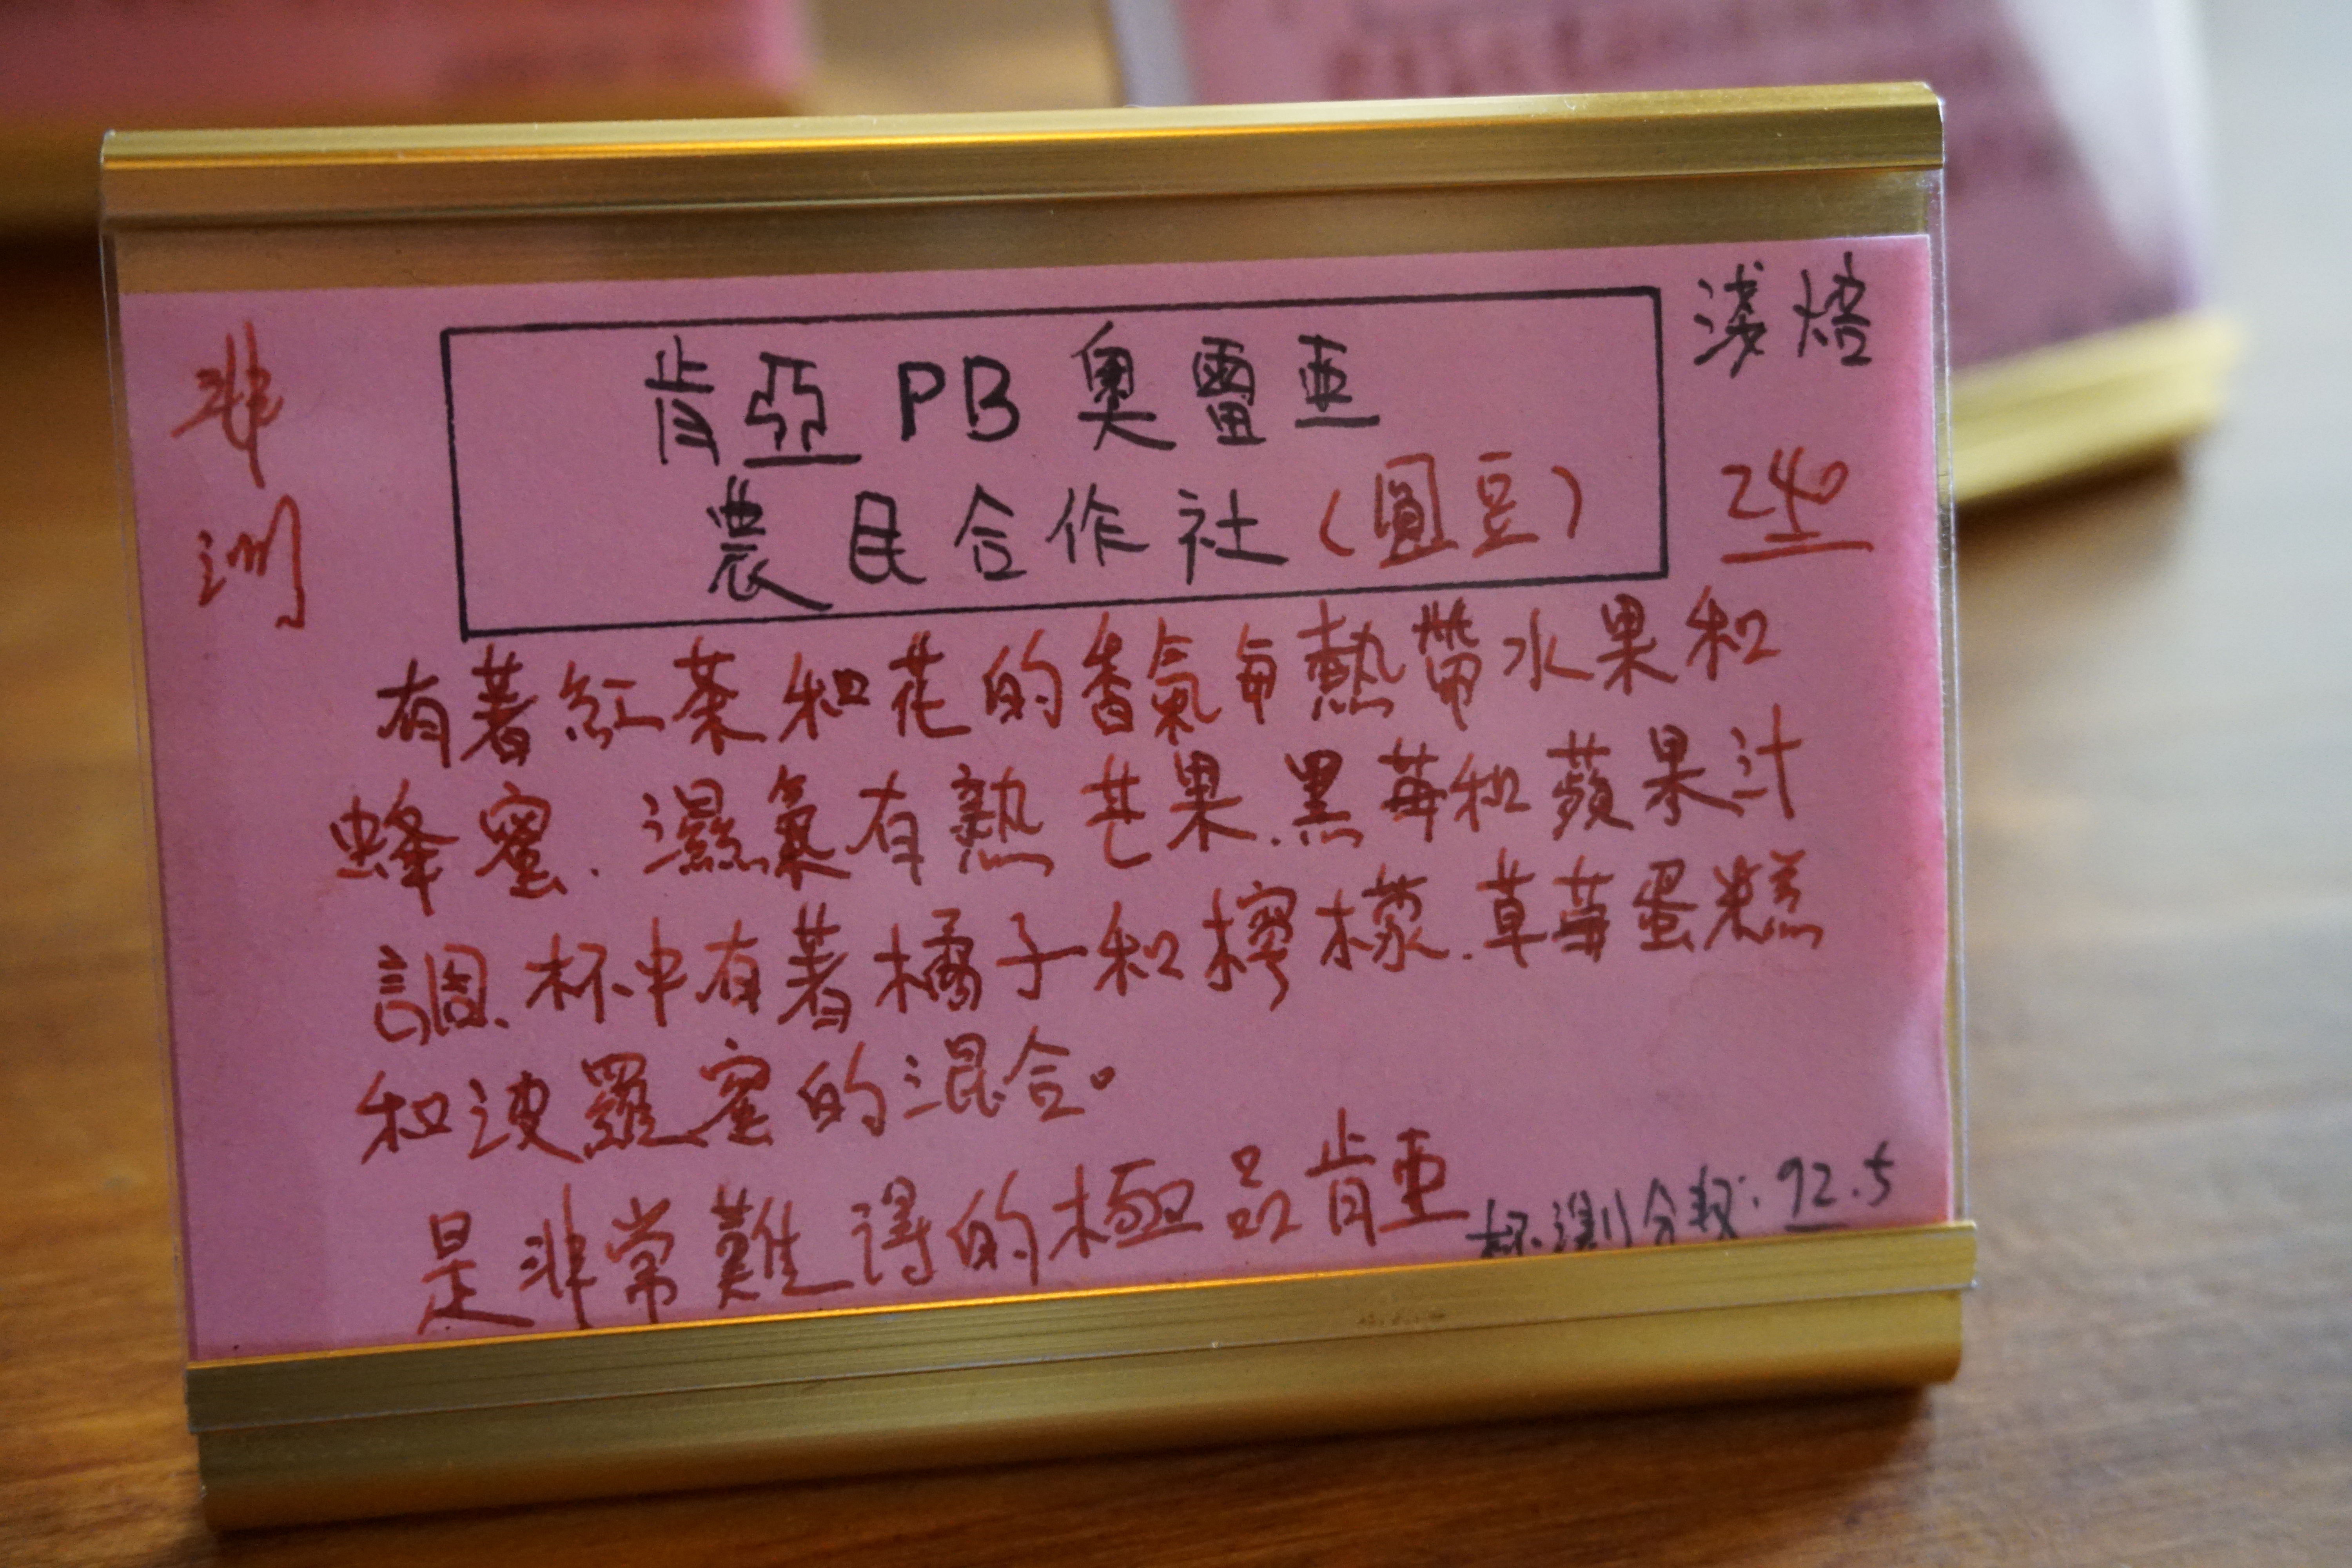 非洲
淺焙
肯亞 PB 奧雷亞
農民合作社 (圓豆)
240
有著紅茶和花的香氣有熱帶水果和
蜂蜜.濕氣有熟芒果.黑莓和蘋果汁
調、杯中有著橘子和檸檬.草莓蛋糕
和波羅蜜的混合。
是非常難得的極品肯亞
杯測分數:92.5